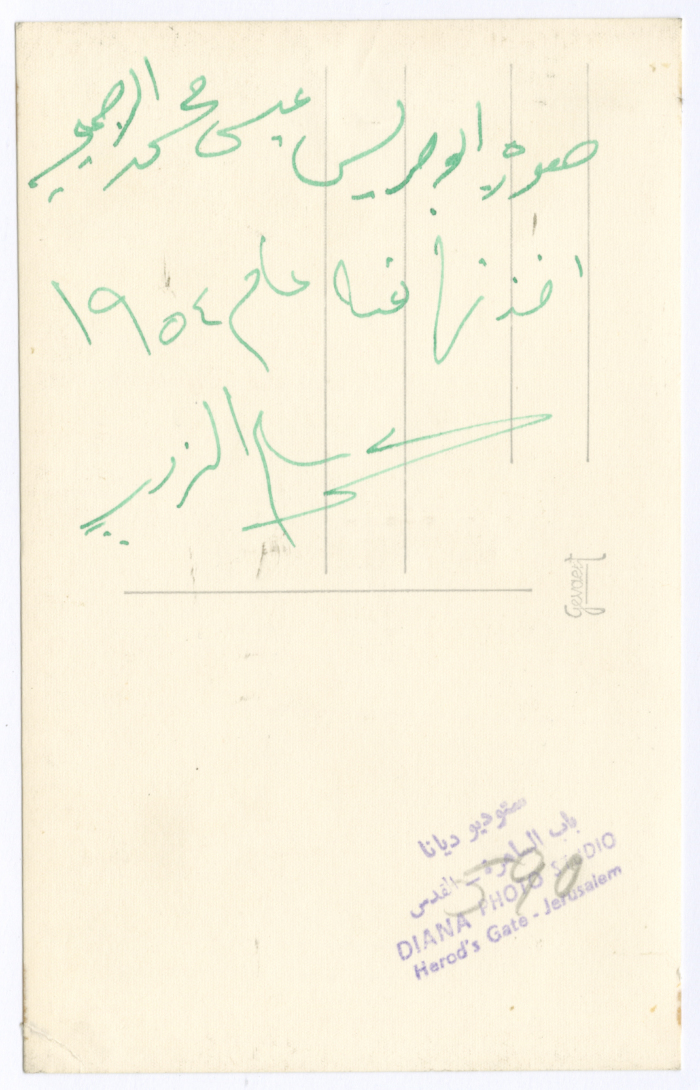 صورة ابو جريس عيسى محمد
اخذتها عام ١٩٥٤
Gevaert
ستوديو ديانا
باب الساهرة - القدس
590
DIANA PHOTO STUDIO
Herod's Gate - Jerusalem